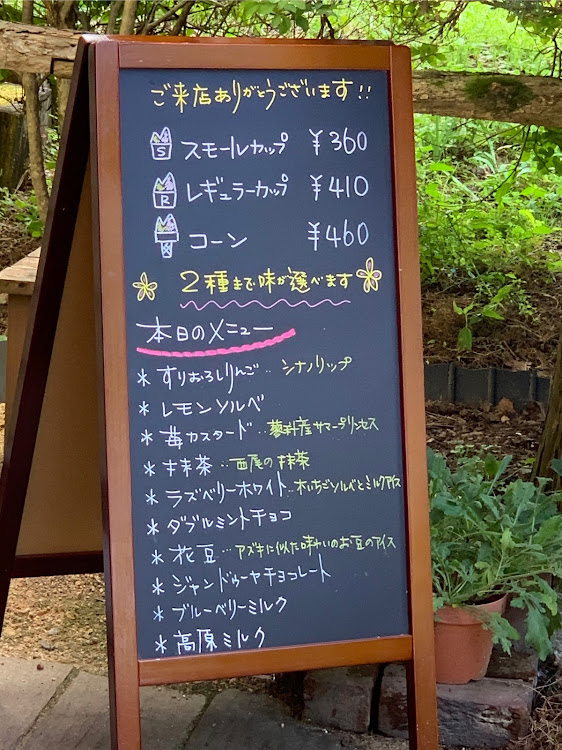 ご来店ありがとうございます!!
S スモールカップ ¥360
R レギュラーカップ ¥410
コーン ¥460
2種まで味が選べます
本日のメニュー
* すりおろしりんご‥シナノリップ
* レモンソルベ
* 苺カスタード‥蓼科産サマープリンセス
* 抹茶‥西尾の抹茶
* ラズベリーホワイト‥木いちごソルベとミルクアイス
* ダブルミントチョコ
* 花豆…アズキに似た味わいのお豆のアイス
* ジャンドゥーヤチョコレート
* ブルーベリーミルク
* 高原ミルク